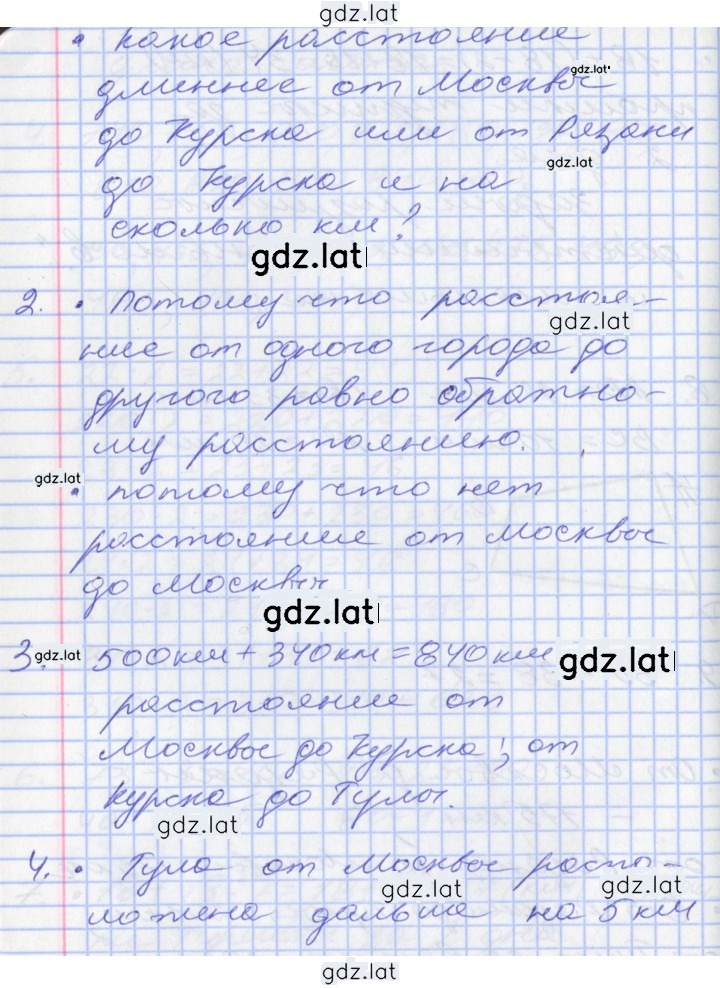 gdz.lat
• какое расстояние
длиннее от Москвы
gdz.lat
до Курска или от Рязани
gdz.lat
до Курска и на
сколько км?
gdz.lat
2. • потому что расстоя-
gdz.lat
ние от одного города до
другого равно обратно-
му расстоянию.
gdz.lat
• потому что нет
расстояние от Москвы
до Москвы
gdz.lat
3. 500 км + 340 км = 840 км
gdz.lat
gdz.lat
расстояние от
Москвы до Курска; от
Курска до Тулы.
gdz.lat
4. • Тула от Москвы распо-
gdz.lat
gdz.lat
ложена дальше на 5 км
gdz.lat